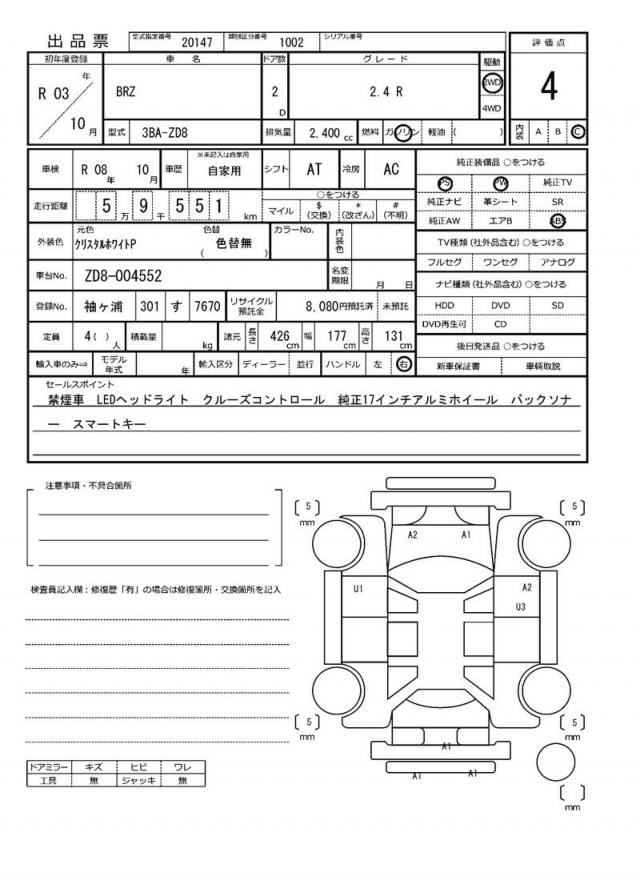 出品票 型式指定番号 20147 類別区分番号 1002 シリアル番号
評価点
初年度登録 車名 ドア数 グレード 駆動
R 03 年 10 月 BRZ 2 D 2.4 R 2WD 4WD 4
型式 3BA-ZD8 排気量 2,400 cc 燃料 ガソリン 軽油 ( ) 内装 A B C
車検 R 08 年 10 月 車歴 ※未記入は自家用 自家用 シフト AT 冷房 AC
走行距離 5 万 9 千 5 5 1 km
○をつける
マイル $ (交換) * (改ざん) # (不明)
外装色 元色 クリスタルホワイトP 色替 ( 色替無 ) カラーNo. 内装色
車台No. ZD8-004552 名変期限 月 日
登録No. 袖ヶ浦 301 す 7670 リサイクル預託金 8,080円預託済 未預託
定員 4( ) 人 積載量 kg 諸元 長さ 426 cm 幅 177 cm 高さ 131 cm
輸入車のみ⇒ モデル年式 年 輸入区分 ディーラー 並行 ハンドル 左 右
純正装備品 ○をつける
PS PW 純正TV
純正ナビ 革シート SR
純正AW エアB ABS
TV種類(社外品含む)○をつける
フルセグ ワンセグ アナログ
ナビ種類(社外品含む)○をつける
HDD DVD SD
DVD再生可 CD
後日発送品 ○をつける
新車保証書 車輌取説
セールスポイント
禁煙車 LEDヘッドライト クルーズコントロール 純正17インチアルミホイール バックソナ
ー スマートキー
注意事項・不具合箇所
検査員記入欄:修復歴「有」の場合は修復箇所・交換箇所を記入
ドアミラー キズ ヒビ ワレ
工具 無 ジャッキ 無
[ 5 ] mm
[ 5 ] mm
A2 A1
U1 A2
U3
[ 5 ] mm
[ 5 ] mm
A1
A1 A1
[ ] mm